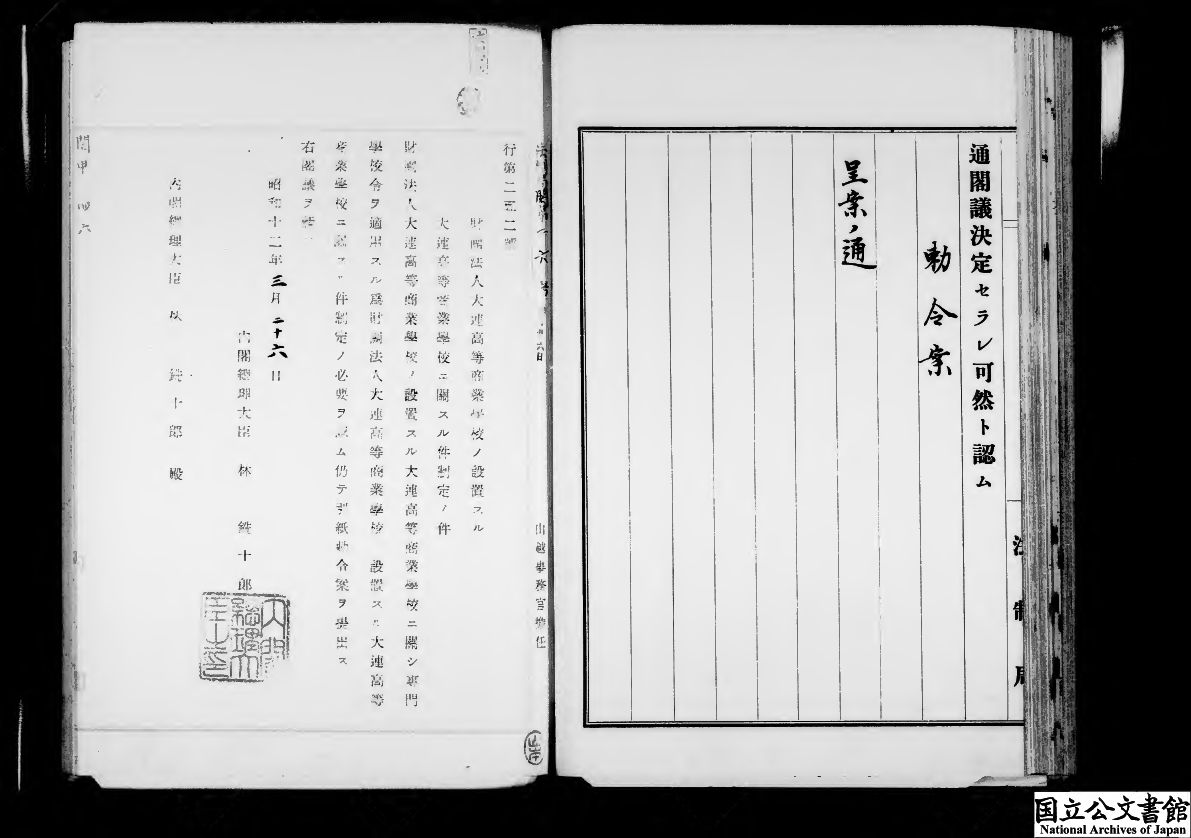 通閣議決定セラレ可然ト認ム
勅令案
呈案ノ通
法制局
山越事務官擔任
行第二五二號
財團法人大連高等商業學校ノ設置スル
大連高等商業學校ニ關スル件制定ノ件
財團法人大連高等商業學校ノ設置スル大連高等商業學校ニ關シ專門
學校令ヲ適用スル爲財團法人大連高等商業學校ノ設置スル大連高等
商業學校ニ關スル件制定ノ必要ヲ認ム仍テ別紙勅令案ヲ提出ス
右閣議ヲ請フ
昭和十二年三月二十六日
內閣總理大臣 林 銑十郎
內閣總理大臣 林 銑十郎 殿
閣甲 四六
国立公文書館
National Archives of Japan